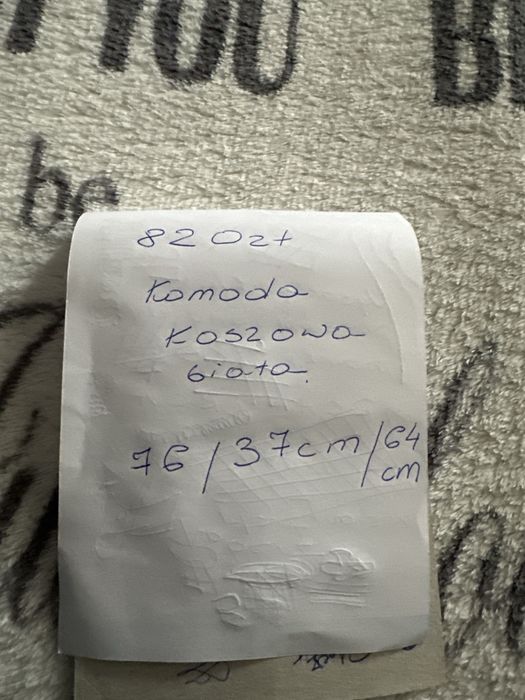 be
820zł
Komoda
Koszowa
biała.
76/37cm/64
cm